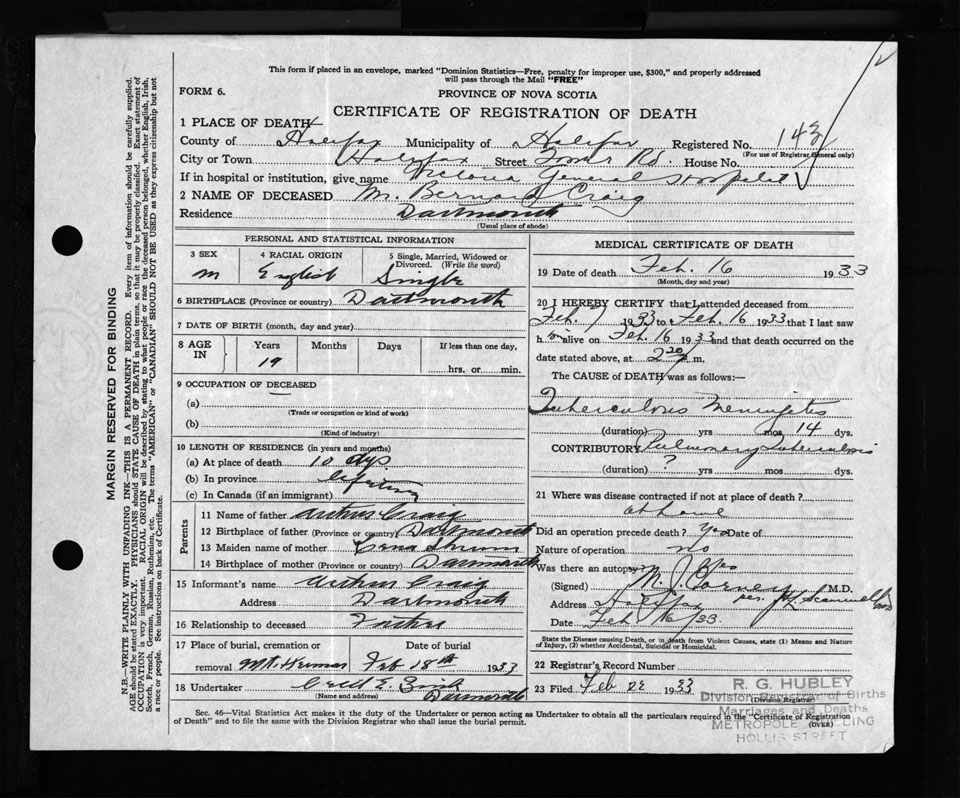 This form if placed in an envelope, marked "Dominion Statistics—Free, penalty for improper use, $300," and properly addressed
will pass through the Mail "FREE"
FORM 6.
PROVINCE OF NOVA SCOTIA
CERTIFICATE OF REGISTRATION OF DEATH
1 PLACE OF DEATH
County of Halifax Municipality of Halifax Registered No. 143
(For use of Registrar General only)
City or Town Halifax Street Tower Rd. House No.
If in hospital or institution, give name Victoria General Hospital
2 NAME OF DECEASED M. Bernard Craig
Residence Dartmouth
(Usual place of abode)
PERSONAL AND STATISTICAL INFORMATION
3 SEX 4 RACIAL ORIGIN 5 Single, Married, Widowed or Divorced. (Write the word)
M English Single
6 BIRTHPLACE (Province or country) Dartmouth
7 DATE OF BIRTH (month, day and year)
8 AGE IN Years Months Days If less than one day,
19 hrs. or min.
9 OCCUPATION OF DECEASED
(a)
(Trade or occupation or kind of work)
(b)
(Kind of industry)
10 LENGTH OF RESIDENCE (in years and months)
(a) At place of death 10 dys
(b) In province lifetime
(c) In Canada (if an immigrant)
Parents
11 Name of father Arthur Craig
12 Birthplace of father (Province or country) Dartmouth
13 Maiden name of mother
14 Birthplace of mother (Province or country) Dartmouth
15 Informant's name Arthur Craig
Address Dartmouth
16 Relationship to deceased Father
17 Place of burial, cremation or Date of burial
removal Mt. Hermon Feb 18th 1933
18 Undertaker
(Name and address) Dartmouth
MEDICAL CERTIFICATE OF DEATH
19 Date of death Feb. 16 1933
(Month, day and year)
20 I HEREBY CERTIFY that I attended deceased from
Feb. 7 1933 to Feb. 16 1933 that I last saw
h im alive on Feb 16 1933 and that death occurred on the
date stated above, at 2 20 m.
The CAUSE of DEATH was as follows:—
Tuberculous Meningitis
(duration) yrs mos 14 dys.
CONTRIBUTORY Pulmonary Tuberculosis
(duration) ? yrs mos dys.
21 Where was disease contracted if not at place of death?
at home
Did an operation precede death? Date of
Nature of operation no
Was there an autopsy? yes
(Signed) M. J. Carney M.D.
Address Halifax per
Date Feb 16/33.
State the Disease causing Death, or in death from Violent Causes, state (1) Means and Nature
of Injury, (2) whether Accidental, Suicidal or Homicidal.
22 Registrar's Record Number
23 Filed Feb 22 1933
(Division Registrar)
R. G. HUBLEY
Division Registrar of Births
Marriages and Deaths
METROPOLE BUILDING
HOLLIS STREET
Sec. 46—Vital Statistics Act makes it the duty of the Undertaker or person acting as Undertaker to obtain all the particulars required in the "Certificate of Registration
of Death" and to file the same with the Division Registrar who shall issue the burial permit.
(OVER)
MARGIN RESERVED FOR BINDING
N.B.—WRITE PLAINLY WITH UNFADING INK—THIS IS A PERMANENT RECORD. Every item of information should be carefully supplied.
AGE should be stated EXACTLY. PHYSICIANS should STATE CAUSE OF DEATH in plain terms, so that it may be properly classified. Exact statement of
OCCUPATION is very important. RACIAL ORIGIN will be described by stating to what people or race the deceased person belonged, whether English, Irish,
Scotch, French, German, Russian, Ruthenian, etc. The terms "AMERICAN" or "CANADIAN" SHOULD NOT BE USED as they express citizenship but not
a race or people. See instructions on back of Certificate.